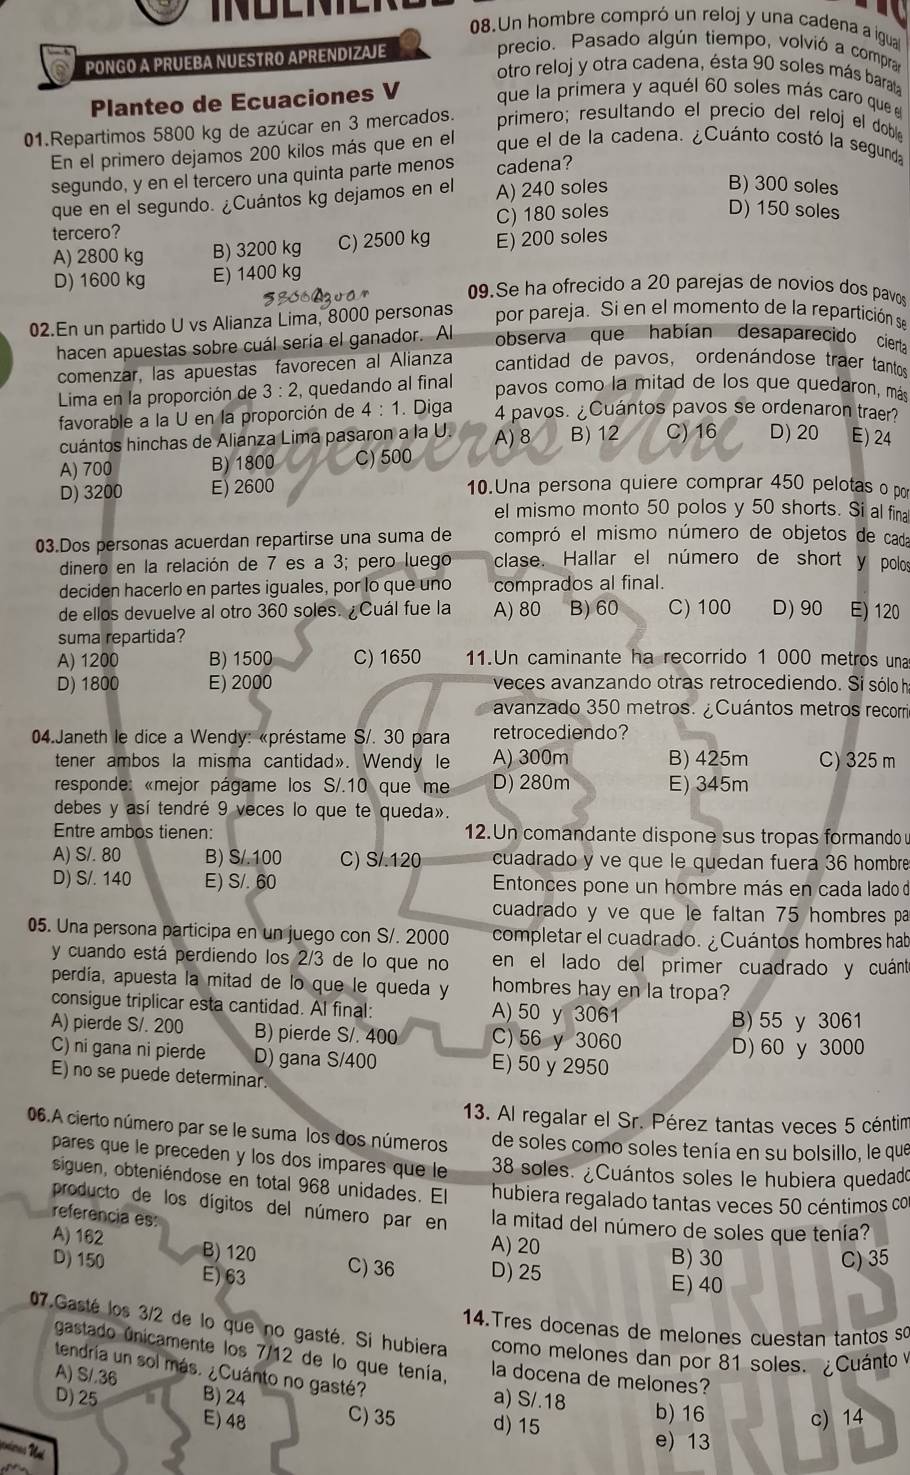 PONGO A PRUEBA NUESTRO APRENDIZAJE
Planteo de Ecuaciones V
01.Repartimos 5800 kg de azúcar en 3 mercados.
En el primero dejamos 200 kilos más que en el
segundo, y en el tercero una quinta parte menos
que en el segundo. ¿Cuántos kg dejamos en el
tercero?
A) 2800 kg B) 3200 kg C) 2500 kg
D) 1600 kg E) 1400 kg
02.En un partido U vs Alianza Lima, 8000 personas
hacen apuestas sobre cuál sería el ganador. Al
comenzar, las apuestas favorecen al Alianza
Lima en la proporción de 3 : 2, quedando al final
favorable a la U en la proporción de 4 : 1. Diga
cuántos hinchas de Alianza Lima pasaron a la U.
A) 700 B) 1800 C) 500
D) 3200 E) 2600
03.Dos personas acuerdan repartirse una suma de
dinero en la relación de 7 es a 3; pero luego
deciden hacerlo en partes iguales, por lo que uno
de ellos devuelve al otro 360 soles. ¿Cuál fue la
suma repartida?
A) 1200 B) 1500 C) 1650
D) 1800 E) 2000
04.Janeth le dice a Wendy: «préstame S/. 30 para
tener ambos la misma cantidad». Wendy le
responde: «mejor págame los S/.10 que me
debes y así tendré 9 veces lo que te queda».
Entre ambos tienen:
A) S/. 80 B) S/.100 C) S/.120
D) S/. 140 E) S/. 60
05. Una persona participa en un juego con S/. 2000
y cuando está perdiendo los 2/3 de lo que no
perdía, apuesta la mitad de lo que le queda y
consigue triplicar esta cantidad. Al final:
A) pierde S/. 200 B) pierde S/. 400
C) ni gana ni pierde D) gana S/400
E) no se puede determinar.
06.A cierto número par se le suma los dos números
pares que le preceden y los dos impares que le
siguen, obteniéndose en total 968 unidades. El
producto de los dígitos del número par en
referencia es:
A) 162 B) 120 C) 36
D) 150 E) 63
07.Gasté los 3/2 de lo que no gasté. Si hubiera
gastado únicamente los 7/12 de lo que tenía,
tendría un sol más. ¿Cuánto no gasté?
A) S/.36 B) 24 C) 35
D) 25 E) 48
08.Un hombre compró un reloj y una cadena a igual
precio. Pasado algún tiempo, volvió a comprar
otro reloj y otra cadena, ésta 90 soles más barata
que la primera y aquél 60 soles más caro que el
primero; resultando el precio del reloj el doble
que el de la cadena. ¿Cuánto costó la segunda
cadena?
A) 240 soles B) 300 soles
C) 180 soles D) 150 soles
E) 200 soles
09.Se ha ofrecido a 20 parejas de novios dos pavos
por pareja. Si en el momento de la repartición se
observa que habían desaparecido cierta
cantidad de pavos, ordenándose traer tantos
pavos como la mitad de los que quedaron, más
4 pavos. ¿Cuántos pavos se ordenaron traer?
A) 8 B) 12 C) 16 D) 20 E) 24
10.Una persona quiere comprar 450 pelotas o por
el mismo monto 50 polos y 50 shorts. Si al final
compró el mismo número de objetos de cada
clase. Hallar el número de short y polos
comprados al final.
A) 80 B) 60 C) 100 D) 90 E) 120
11.Un caminante ha recorrido 1 000 metros unas
veces avanzando otras retrocediendo. Si sólo h
avanzado 350 metros. ¿Cuántos metros recorri
retrocediendo?
A) 300m B) 425m C) 325 m
D) 280m E) 345m
12.Un comandante dispone sus tropas formando u
cuadrado y ve que le quedan fuera 36 hombre
Entonces pone un hombre más en cada lado d
cuadrado y ve que le faltan 75 hombres pa
completar el cuadrado. ¿Cuántos hombres hab
en el lado del primer cuadrado y cuánt
hombres hay en la tropa?
A) 50 y 3061 B) 55 y 3061
C) 56 y 3060 D) 60 y 3000
E) 50 y 2950
13. Al regalar el Sr. Pérez tantas veces 5 céntim
de soles como soles tenía en su bolsillo, le que
38 soles. ¿Cuántos soles le hubiera quedado
hubiera regalado tantas veces 50 céntimos co
la mitad del número de soles que tenía?
A) 20 B) 30 C) 35
D) 25 E) 40
14.Tres docenas de melones cuestan tantos so
como melones dan por 81 soles. ¿Cuánto v
la docena de melones?
a) S/.18 b) 16 c) 14
d) 15 e) 13